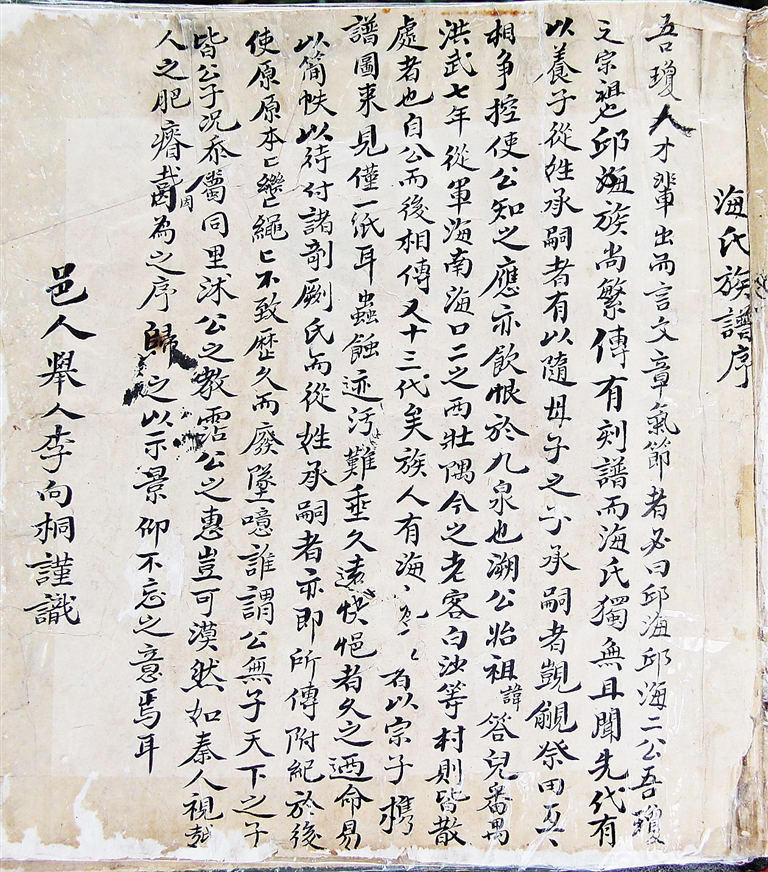 海氏族譜序
吾瓊人才輩出而言文章氣節者必曰邱海邱海二公吾瓊
之宗祖也邱海族尚繁傳有刻譜而海氏獨無且聞先代有
以養子從姓承嗣者有以隨母子之子承嗣者覬覦祭田互
相爭控使公知之應亦飲恨於九泉也溯公始祖諱答兒番禺
洪武七年從軍海南海口二之西壯隅今之老客白沙等村則皆散
處者也自公而後相傳又十三代矣族人有海者以宗子攜
譜圖來見僅一紙耳蟲蝕迹污難垂久遠快悒者久之迺命易
以簡帙以待付諸剞劂氏而從姓承嗣者亦即所傳附紀於後
使原原本匕繼匕繩匕不致歷久而廢墜噫誰謂公無子天下之子
皆公子況忝屬同里沐公之教霑公之惠豈可漠然如秦人視越
人之肥瘠哉因為之序歸之以示景仰不忘之意焉耳
邑人舉人李向桐謹識